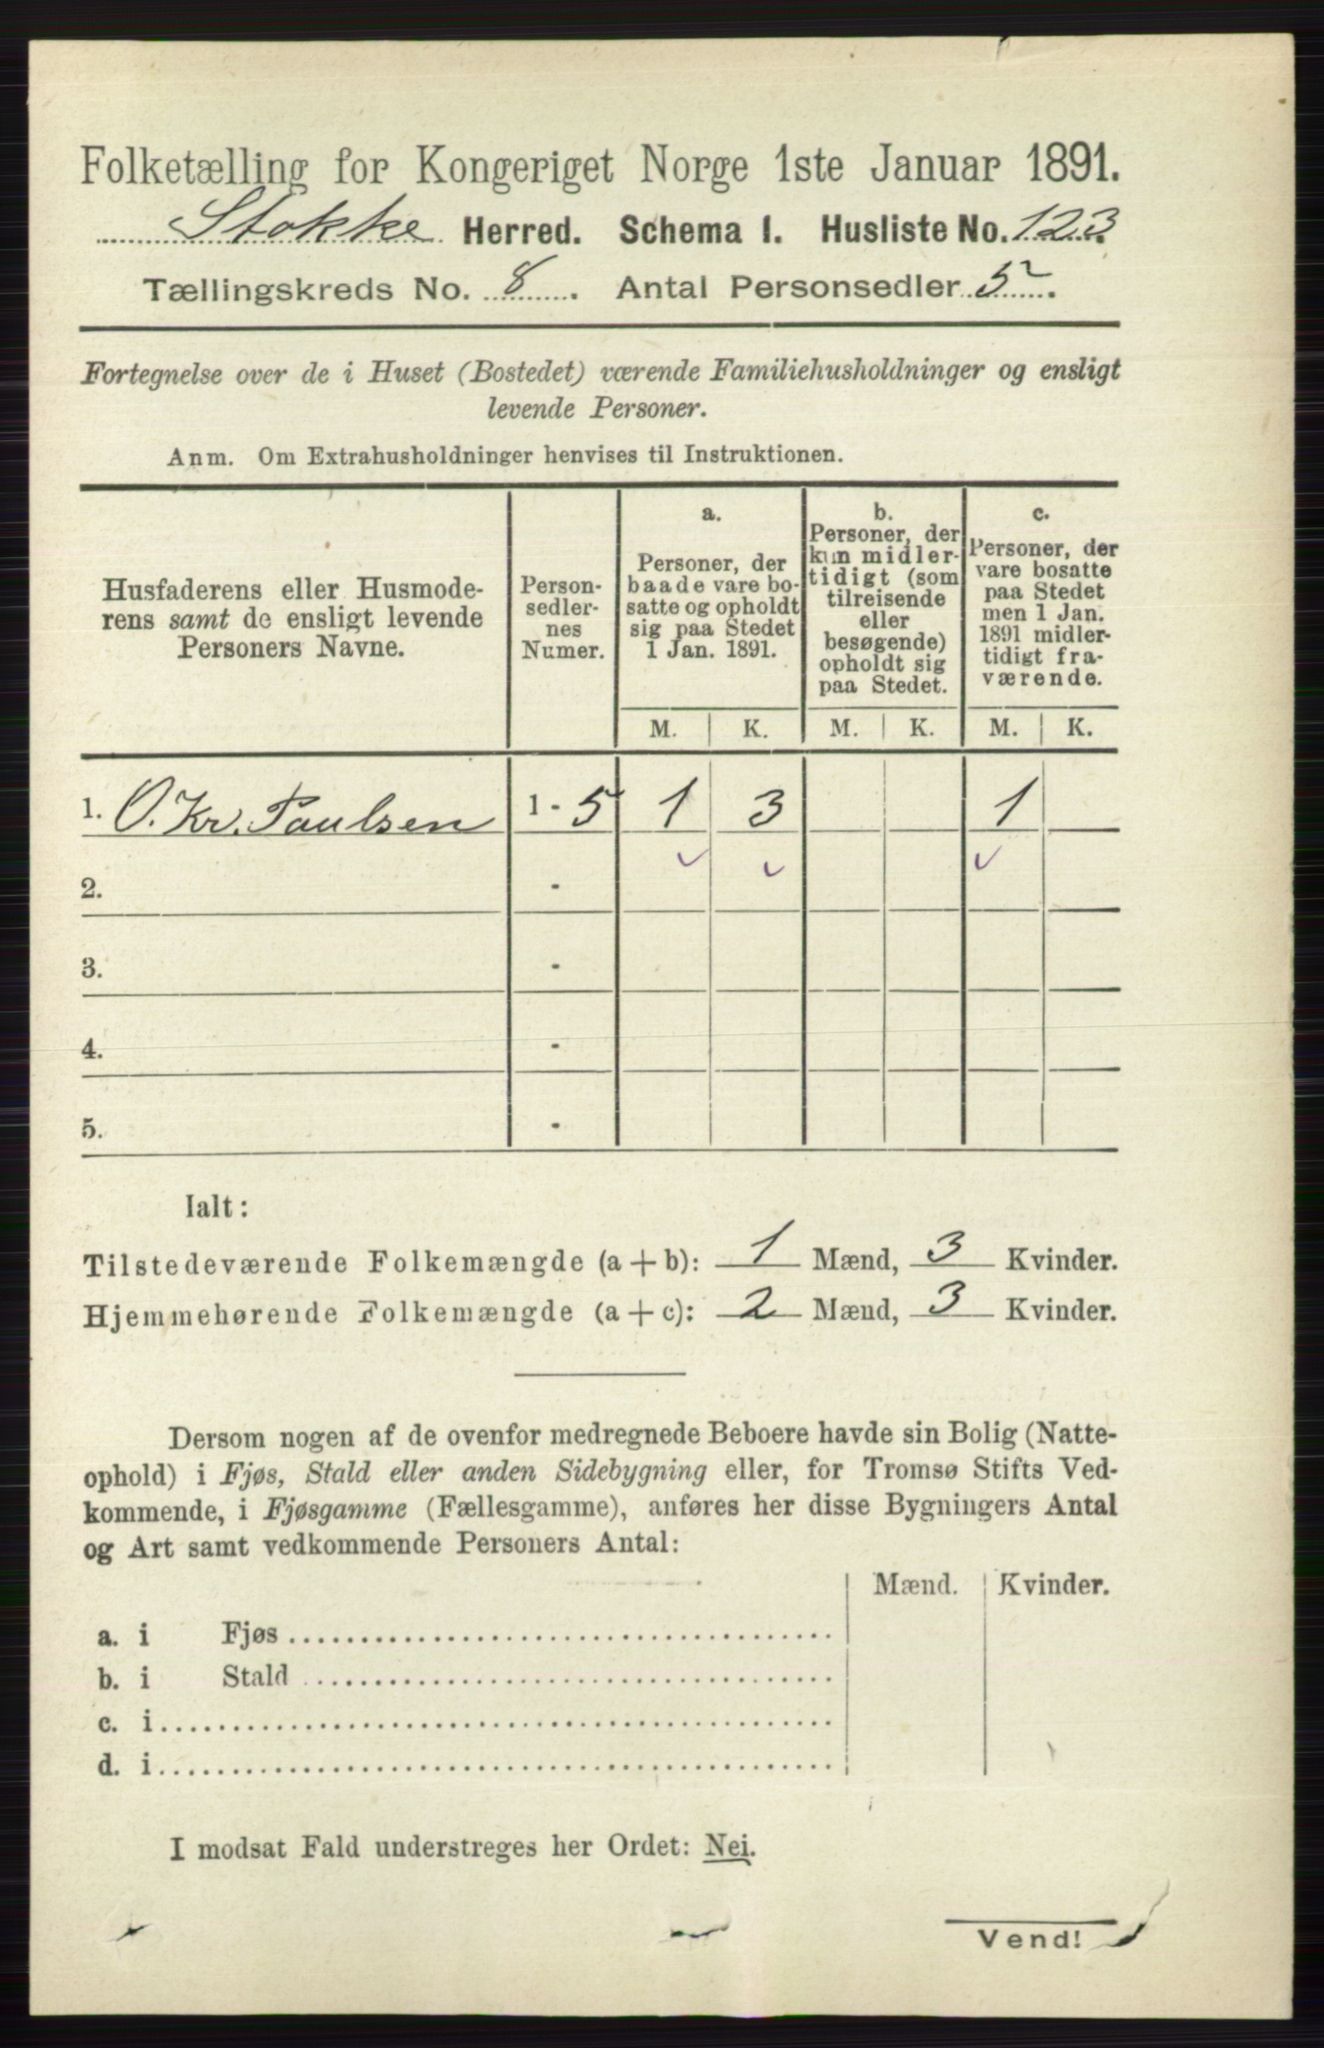 Folketælling for Kongeriget Norge 1ste Januar 1891.
Stokke Herred. Schema 1. Husliste No. 123
Tællingskreds No. 8. Antal Personsedler 5.
Fortegnelse over de i Huset (Bostedet) værende Familiehusholdninger og ensligt
levende Personer.
Anm. Om Extrahusholdninger henvises til Instruktionen.
Husfaderens eller Husmode-
rens samt de ensligt levende
Personers Navne.
Person-
sedler-
nes
Numer.
a.
Personer, der
baade vare bo-
satte og opholdt
sig paa Stedet
1 Jan. 1891.
b.
Personer, der
kun midler-
tidigt (som
tilreisende
eller
besøgende)
opholdt sig
paa Stedet.
c.
Personer, der
vare bosatte
paa Stedet
men 1 Jan.
1891 midler-
tidigt fra-
værende.
M. K. M. K. M. K.
1. O. Kr. Paulsen 1 - 5 1 3 1
2. -
3. -
4. -
5. -
Ialt:
Tilstedeværende Folkemængde (a + b): 1 Mænd, 3 Kvinder.
Hjemmehørende Folkemængde (a + c): 2 Mænd, 3 Kvinder.
Dersom nogen af de ovenfor medregnede Beboere havde sin Bolig (Natte-
ophold) i Fjøs, Stald eller anden Sidebygning eller, for Tromsø Stifts Ved-
kommende, i Fjøsgamme (Fællesgamme), anføres her disse Bygningers Antal
og Art samt vedkommende Personers Antal:
Mænd. Kvinder.
a. i Fjøs
b. i Stald
c. i
d. i
I modsat Fald understreges her Ordet: Nei.
Vend!